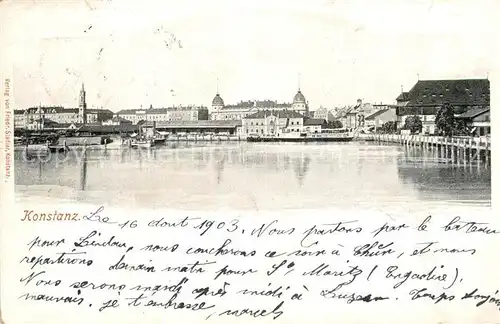 Verlag von Friedr. Stadler, Konstanz.
Konstanz. Le 16 dout 1903. Nous partons par le bateau
pour Lindau, nous couchons ce soir à Chur, et nous
repartirons demain matin pour St Moritz (Engadine)
Nous serons mardi après midi à Luzern. Temps
mauvais. je t'embrasse, marcel